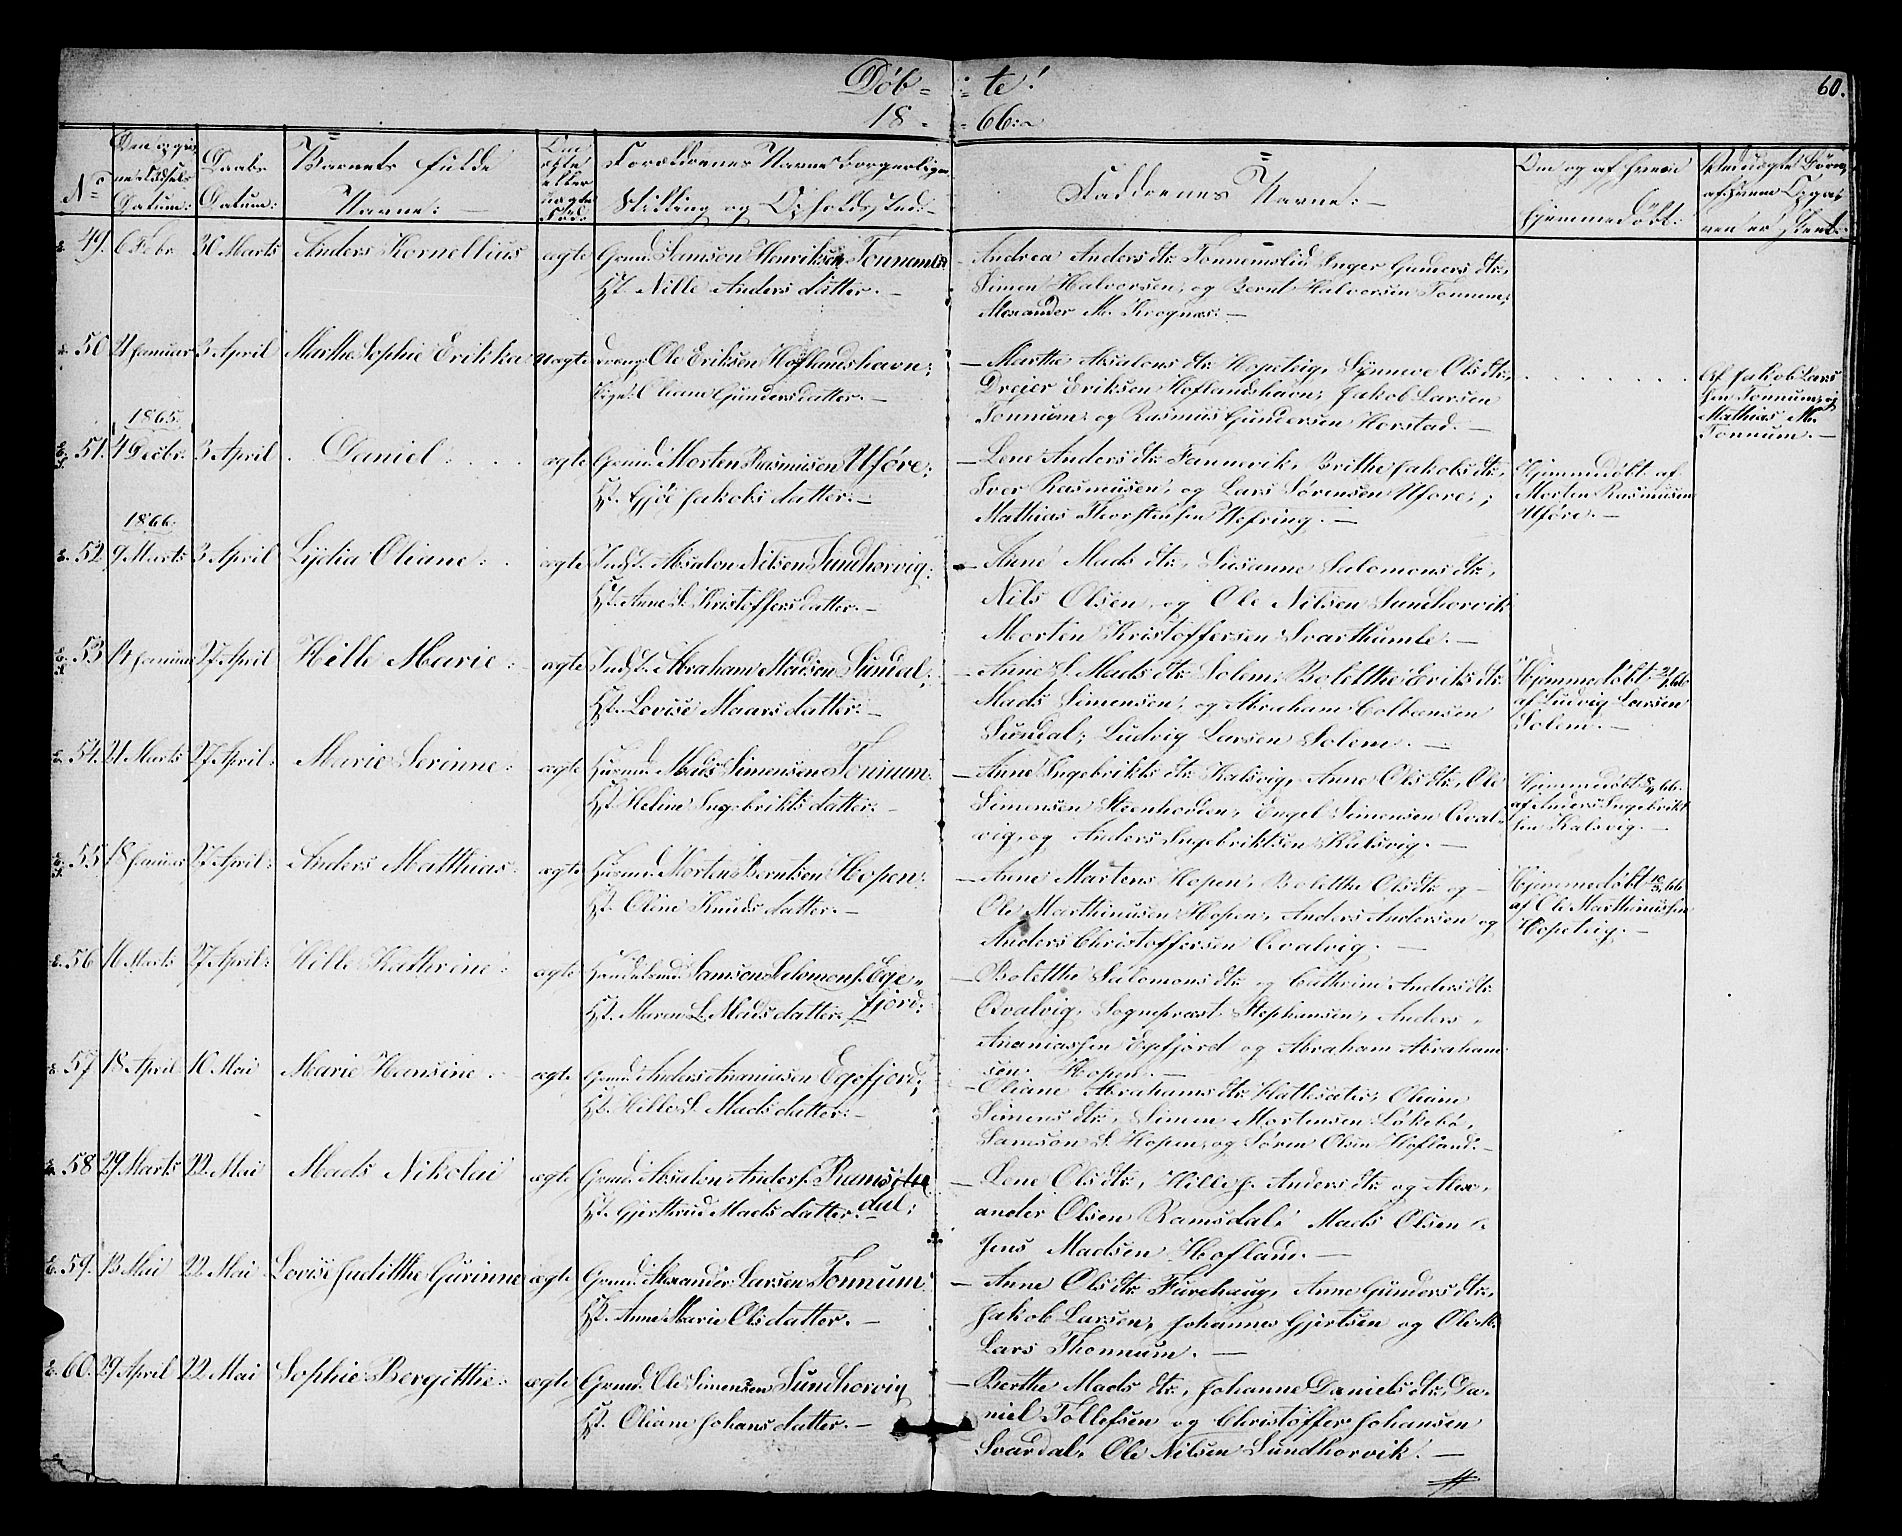 Døb- -te!
60.
18- -66:
No
Datum:
Daabs Datum:
Barnets fulde Navne:
Om ægte eller uægte Fød:
Forældrenes Navne Borgerlige Stilling og Opholdssted:
Faddrenes Navne:
Om og af hvem hjemmedøbt:
49. 6 Febr 30 Marts Anders Kornellius ægte Grmd. Samson Henriksen Tonnum
H. Nille Anders datter.
Andrea Anders dtr Tonnemslid, Inger Guners dtr,
Simen Halvorsen, og Bernt Halvorsen Tonnum;
Alexander M. Krognæs:
50 21 Januar 3 April Marthe Sophie Erikka uægte Ole Eriksen Hoflandshavn;
Pige: Oliane Gunders datter.
Marthe Absalons dtr Hopeteig, Synneve Ols dtr,
Dreier Eriksen Hoflandshavn, Jakob Larsen
Tonnum; og Rasmus Gundersen Herstad.
Af Jakob Lars
sen Tonnum, og
Mathias M.
Tonnum.
1865.
51. 4 Decbr. 3 April Daniel ægte Grmd. Morten Rasmusen Uføre;
H. Gjøe Jakobs datter.
Lene Anders dtr Fannevik, Brithe Jakobs dtr,
Iver Rasmusen, og Lars Sørensen Uføre;
Mathias Thorstensen Nefring.
Hjemmedøbt af
Morten Rasmusen
Uføre.
1866.
52. 9 Marts 3 April Lydia Oliane: ægte Inds. Absalon Nilsen Sundhorvig:
H. Anne S. Kristoffers datter.
Anne Mads dtr, Susanne Salomons dtr,
Nils Olsen, og Ole Nilsen Sundhorvik
Morten Kristoffersen Svarthumle.
53 14 Januar 27 April Hille Marie: ægte Inds. Abraham Madsen Sundal;
H. Lovise Maars datter.
Anne S. Mads dtr Solem; Bolethe Eriks dtr
Mads Simensen, og Abraham Colbensen
Sundal; Ludvig Larsen Solem.
Hjemmedøbt
af Ludvig Larsen
Solem.
54. 21 Marts 27 April: Marie Serinne: ægte Husmd. Mads Simensen Tonnum.
H. Heline Ingebrikts datter:
Anne Ingebrikts dtr Kalsvig, Anne Ols dtr, Ole
Simensen Steenhovden, Engel Simensen Qval-
vig, og Anders Ingebriktsen Kalsvig.
Hjemmedøbt
af Anders Ingebrikt
sen Kalsvig.
55 18 Januar 27 April: Anders Matthias. ægte Husmd. Morten Berntsen Hopen:
H. Oline Knuds datter.
Anne Martens Hopen, Bolethe Ols dtr og
Ole Marthinusen Hopen, Anders Andersen og
Anders Christoffersen Qvalvig.
Hjemmedøbt
af Ole Marthinussen
Hopeteig.
56 16 Marts 27 April: Hille Kathrine: ægte Samson Salomons. Ege-
H. Maren L. Mads datter. fjord:
Bolethe Salomons dtr og Cathrine Anders dtr
Qvalvig, Sognepræst Stephansen, Anders
Ananiassen Egefjord og Abraham Abraham
sen Hopen.
57 18 April 10 Mai Marie Hansine. ægte Grmd. Anders Ananiasen Egefjord;
H. Hille S. Mads datter:
Oliane Abrahams dtr Hatlesæter, Oliane
Simens dtr, Simen Mortensen Løkebø,
Samson S. Hopen, og Søren Olsen Hofland:
58 29 Marts 22 Mai Mads Nikolai ægte Grmd. Absalon Anders. Rams
H. Gjerthrud Mads datter. dal;
Lene Ols dtr, Hille J. Anders dtr og Alex-
ander Olsen Ramsdal, Mads Olsen
Jens Madsen Hofland.
59. 13 Mai 22 Mai Lovise Judithe Gurinne ægte Grmd. Alexander Larsen Tonnum
H. Anne Marie Ols datter.
Anne Ols dtr Furehaug, Anne Gunders dtr,
Jakob Larsen, Johannes Gjertsen og Ole M.
Lars Thonnum.
60. 29 April 22 Mai Sophie Bergitthe: ægte Grmd. Ole Simensen Sundhorvig
H. Oliane Johans datter.
Berthe Mads dtr, Johanne Daniels dtr, Da-
niel Tollefsen og Christoffer Johansen
Svardal, Ole Nilsen Sundhorvik.